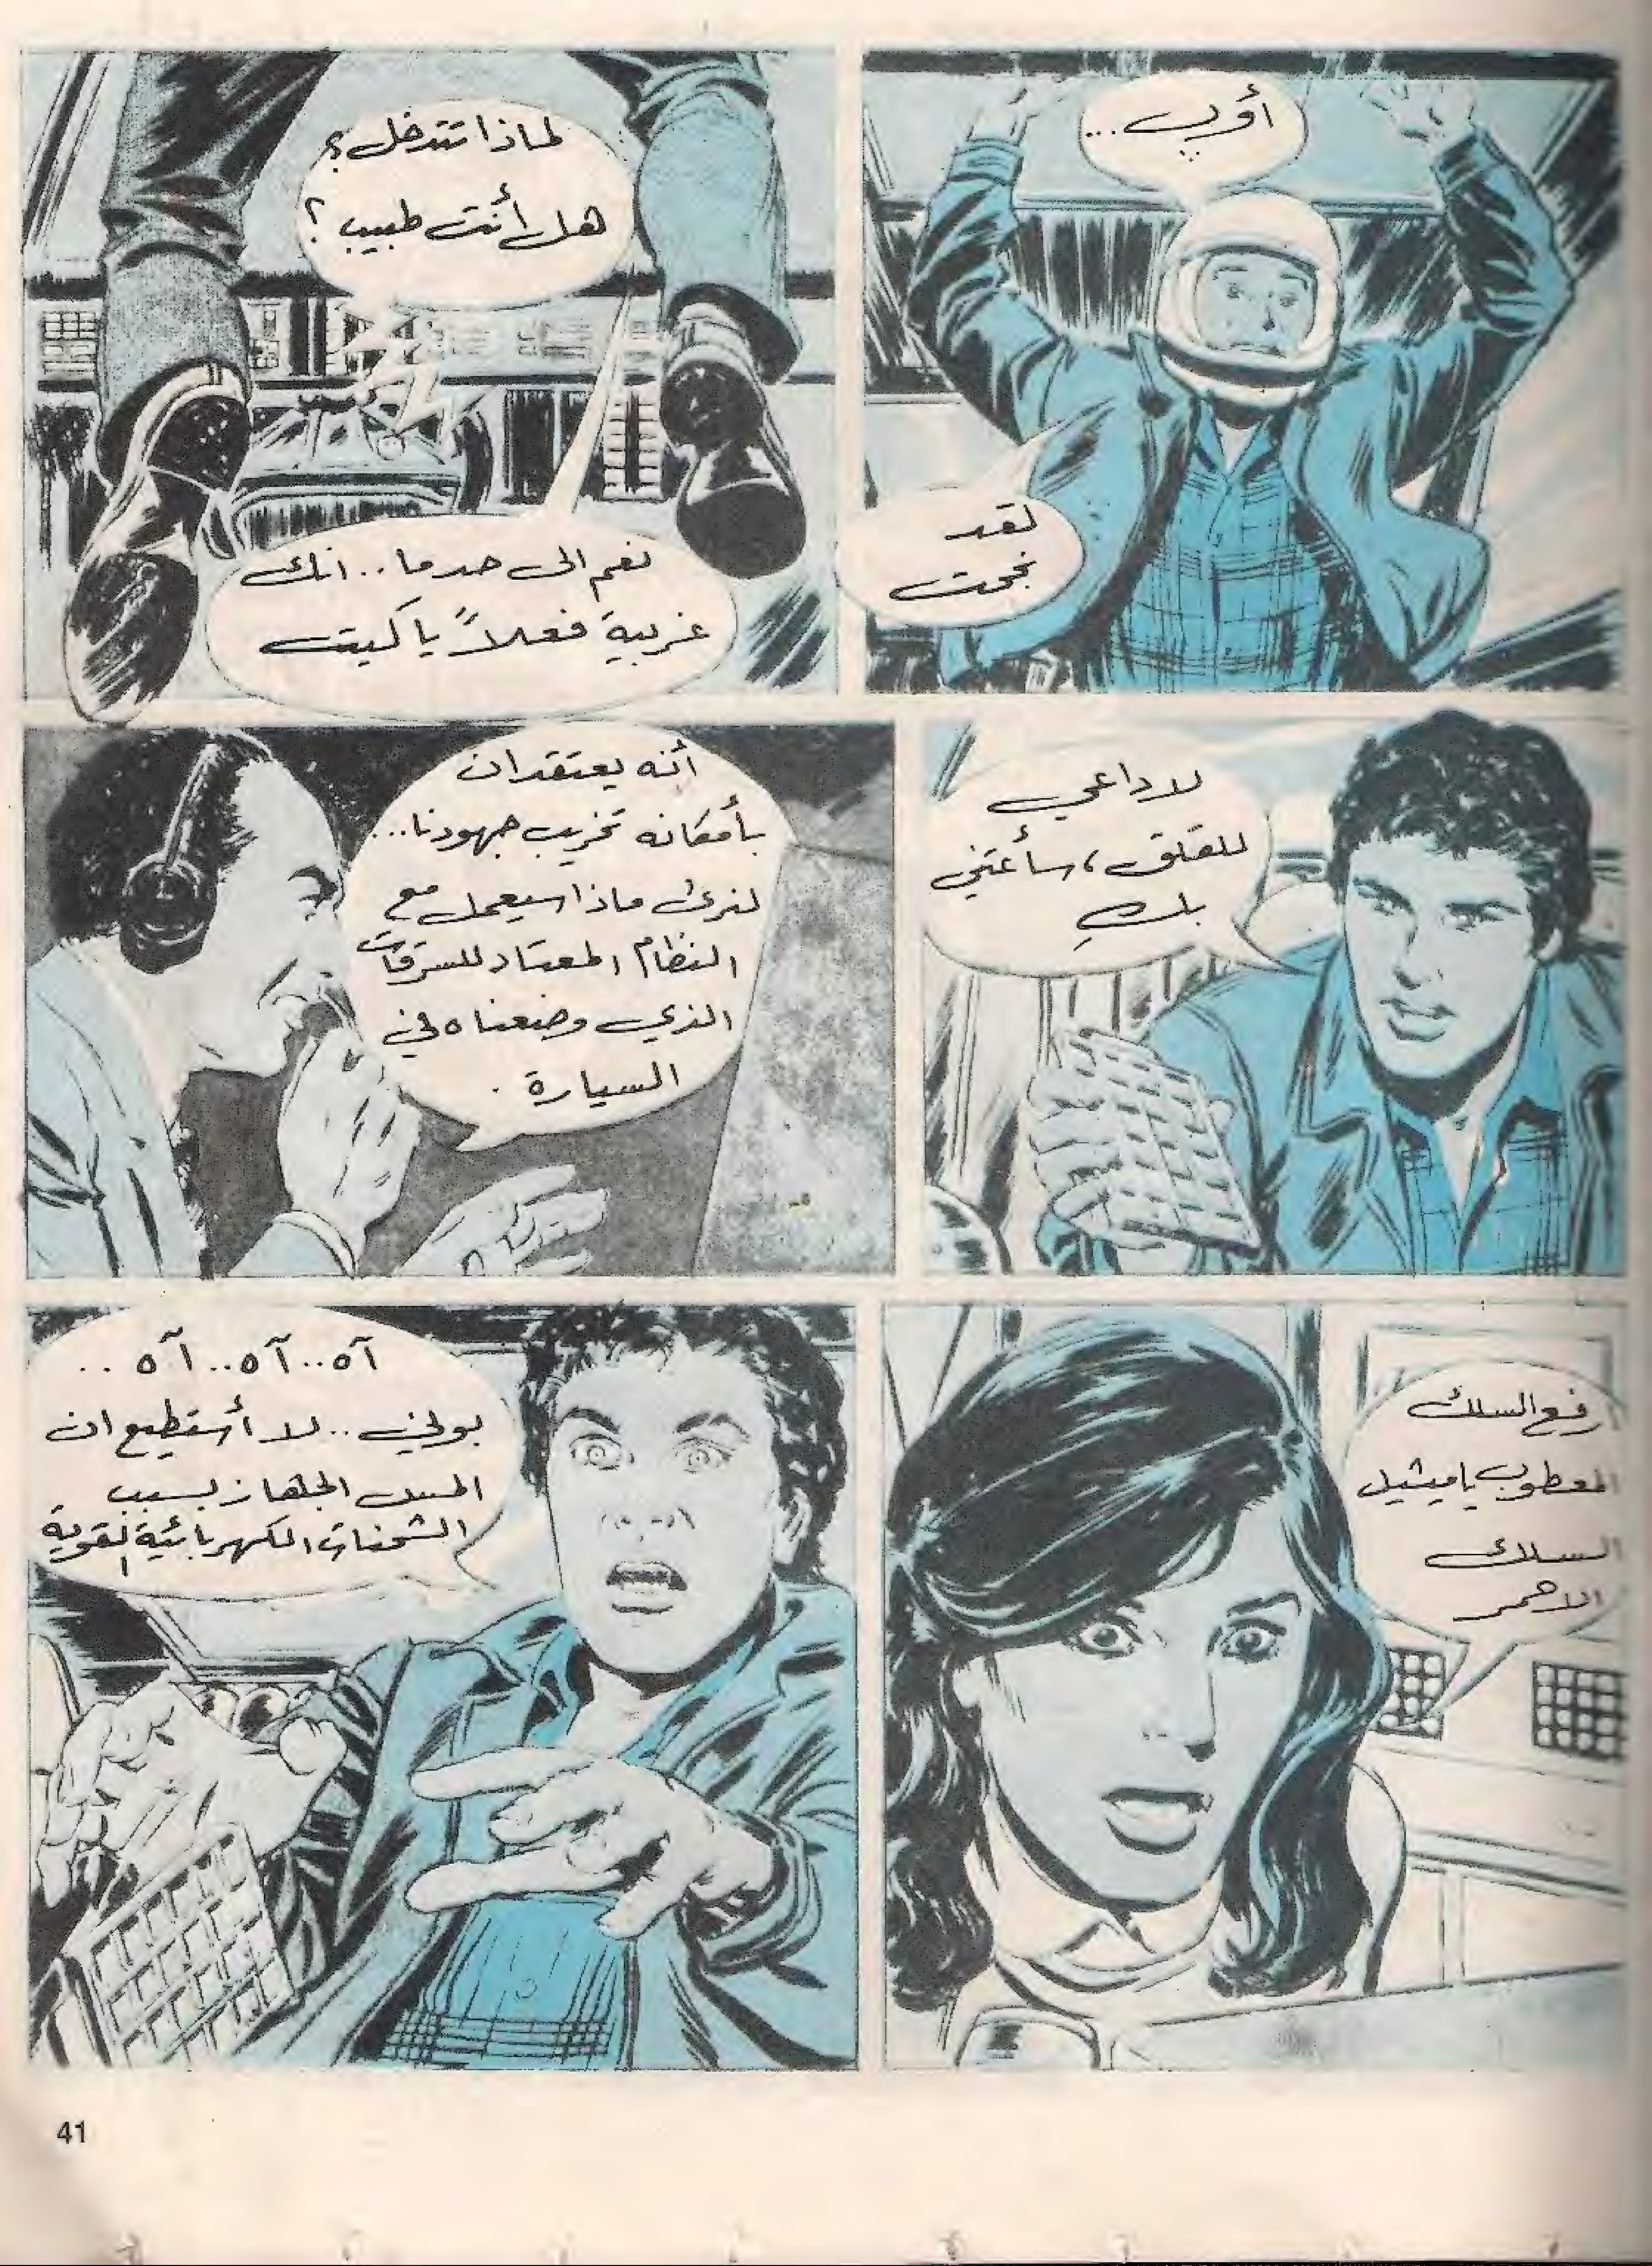 أوب...
لقد
نجحت
لماذا تتدخل؟
هل أنت طبيب؟
نعم الى حد ما.. انك
غريبة فعلاً يا كيت
لا داعي
للقلق، سأعتني
بكِ
أنه يعتقد ان
بأمكانه تخريب جهودنا...
لنرى ماذا سيعمل مع
النظام المعتاد للسرقات
الذي وضعناه في
السيارة.
رفع السلك
المعطوب يا ميشيل
السلك
الاحمر
آه..آه..آه..
بوني..لا أستطيع ان
المس الجهاز بسبب
الشحنات الكهربائية القوية
41